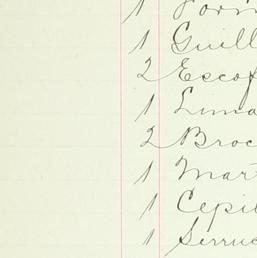 1 Form
1 Guill
2 Escof
1 Lima
2 Broc
1 Mart
1 Cepil
1 Serruc